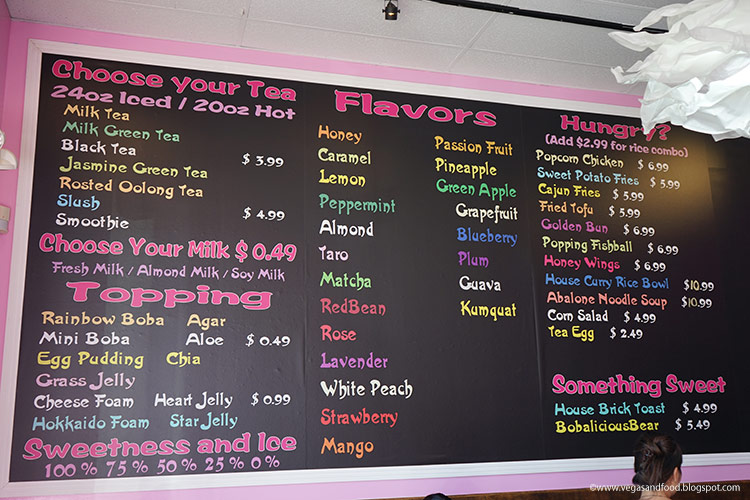 Choose your Tea
24oz Iced / 20oz Hot
Milk Tea
Milk Green Tea
Black Tea
$ 3.99
Jasmine Green Tea
Rosted Oolong Tea
Slush
$ 4.99
Smoothie
Choose Your Milk $ 0.49
Fresh Milk / Almond Milk / Soy Milk
Topping
Rainbow Boba Agar
Mini Boba Aloe $ 0.49
Egg Pudding Chia
Grass Jelly
Cheese Foam Heart Jelly $ 0.99
Hokkaido Foam Star Jelly
Sweetness and Ice
100 % 75 % 50 % 25 % 0 %
Flavors
Honey
Caramel
Lemon
Peppermint
Almond
Taro
Matcha
RedBean
Rose
Lavender
White Peach
Strawberry
Mango
Passion Fruit
Pineapple
Green Apple
Grapefruit
Blueberry
Plum
Guava
Kumquat
Hungry?
(Add $2.99 for rice combo)
Popcorn Chicken $ 6.99
Sweet Potato Fries $ 5.99
Cajun Fries $ 5.99
Fried Tofu $ 5.99
Golden Bun $ 6.99
Popping Fishball $ 6.99
Honey Wings $ 6.99
House Curry Rice Bowl $10.99
Abalone Noodle Soup $10.99
Corn Salad $ 4.99
Tea Egg $ 2.49
Something Sweet
House Brick Toast $ 4.99
BobaliciousBear $ 5.49
©www.vegasandfood.blogspot.com